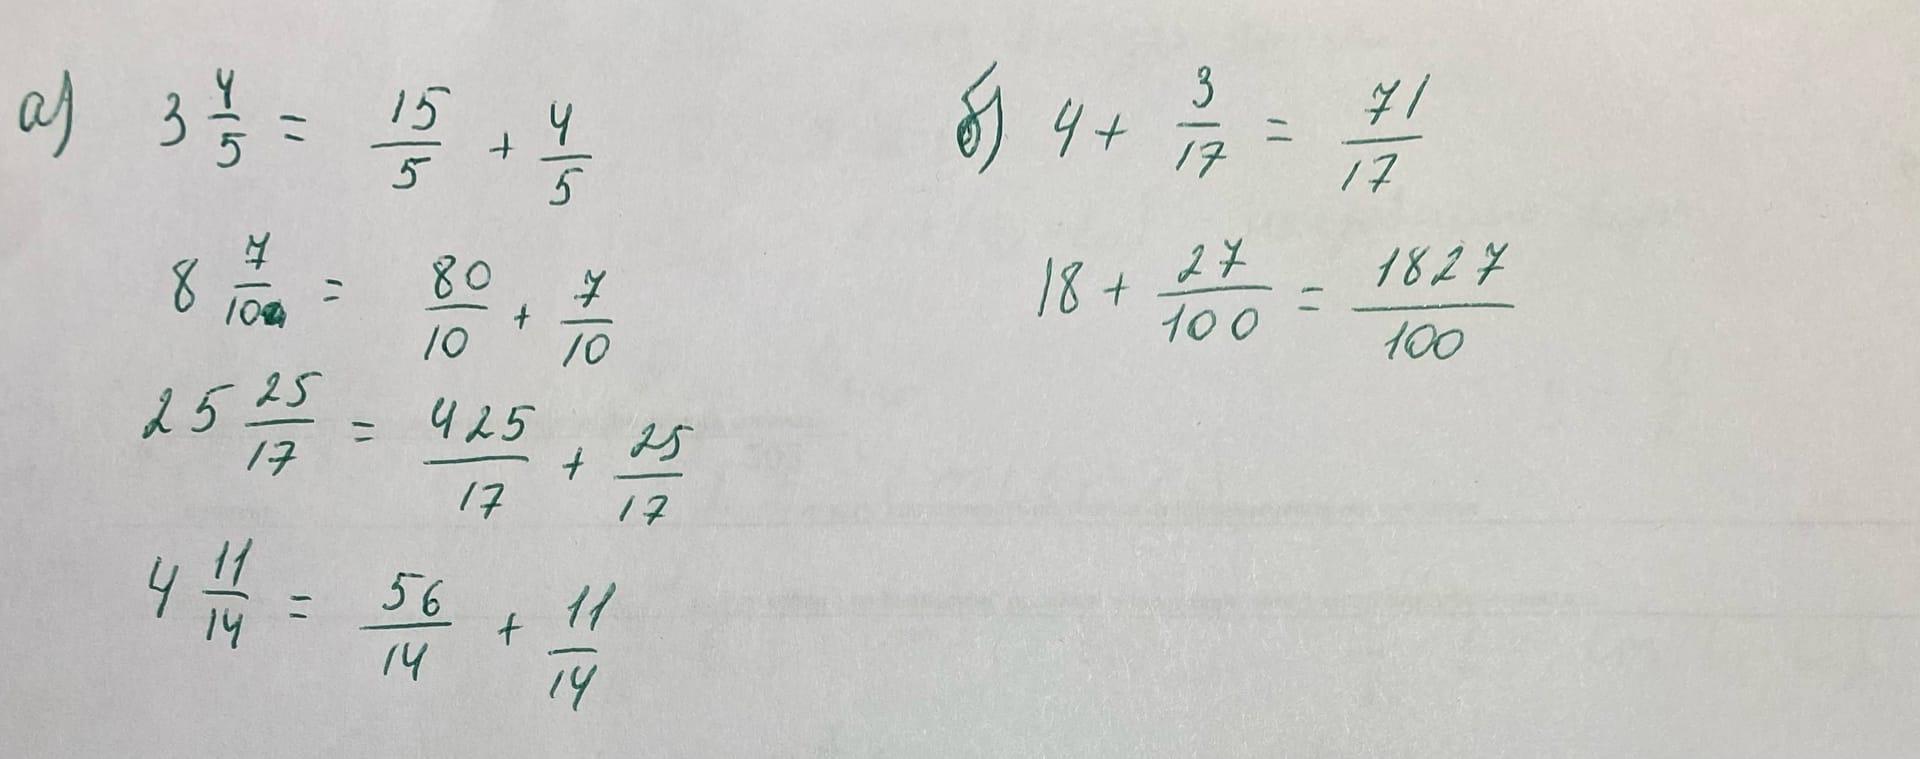 а) 3 4/5 = 15/5 + 4/5
8 7/10 = 80/10 + 7/10
25 25/17 = 425/17 + 25/17
4 11/14 = 56/14 + 11/14
б) 4 + 3/17 = 71/17
18 + 27/100 = 1827/100